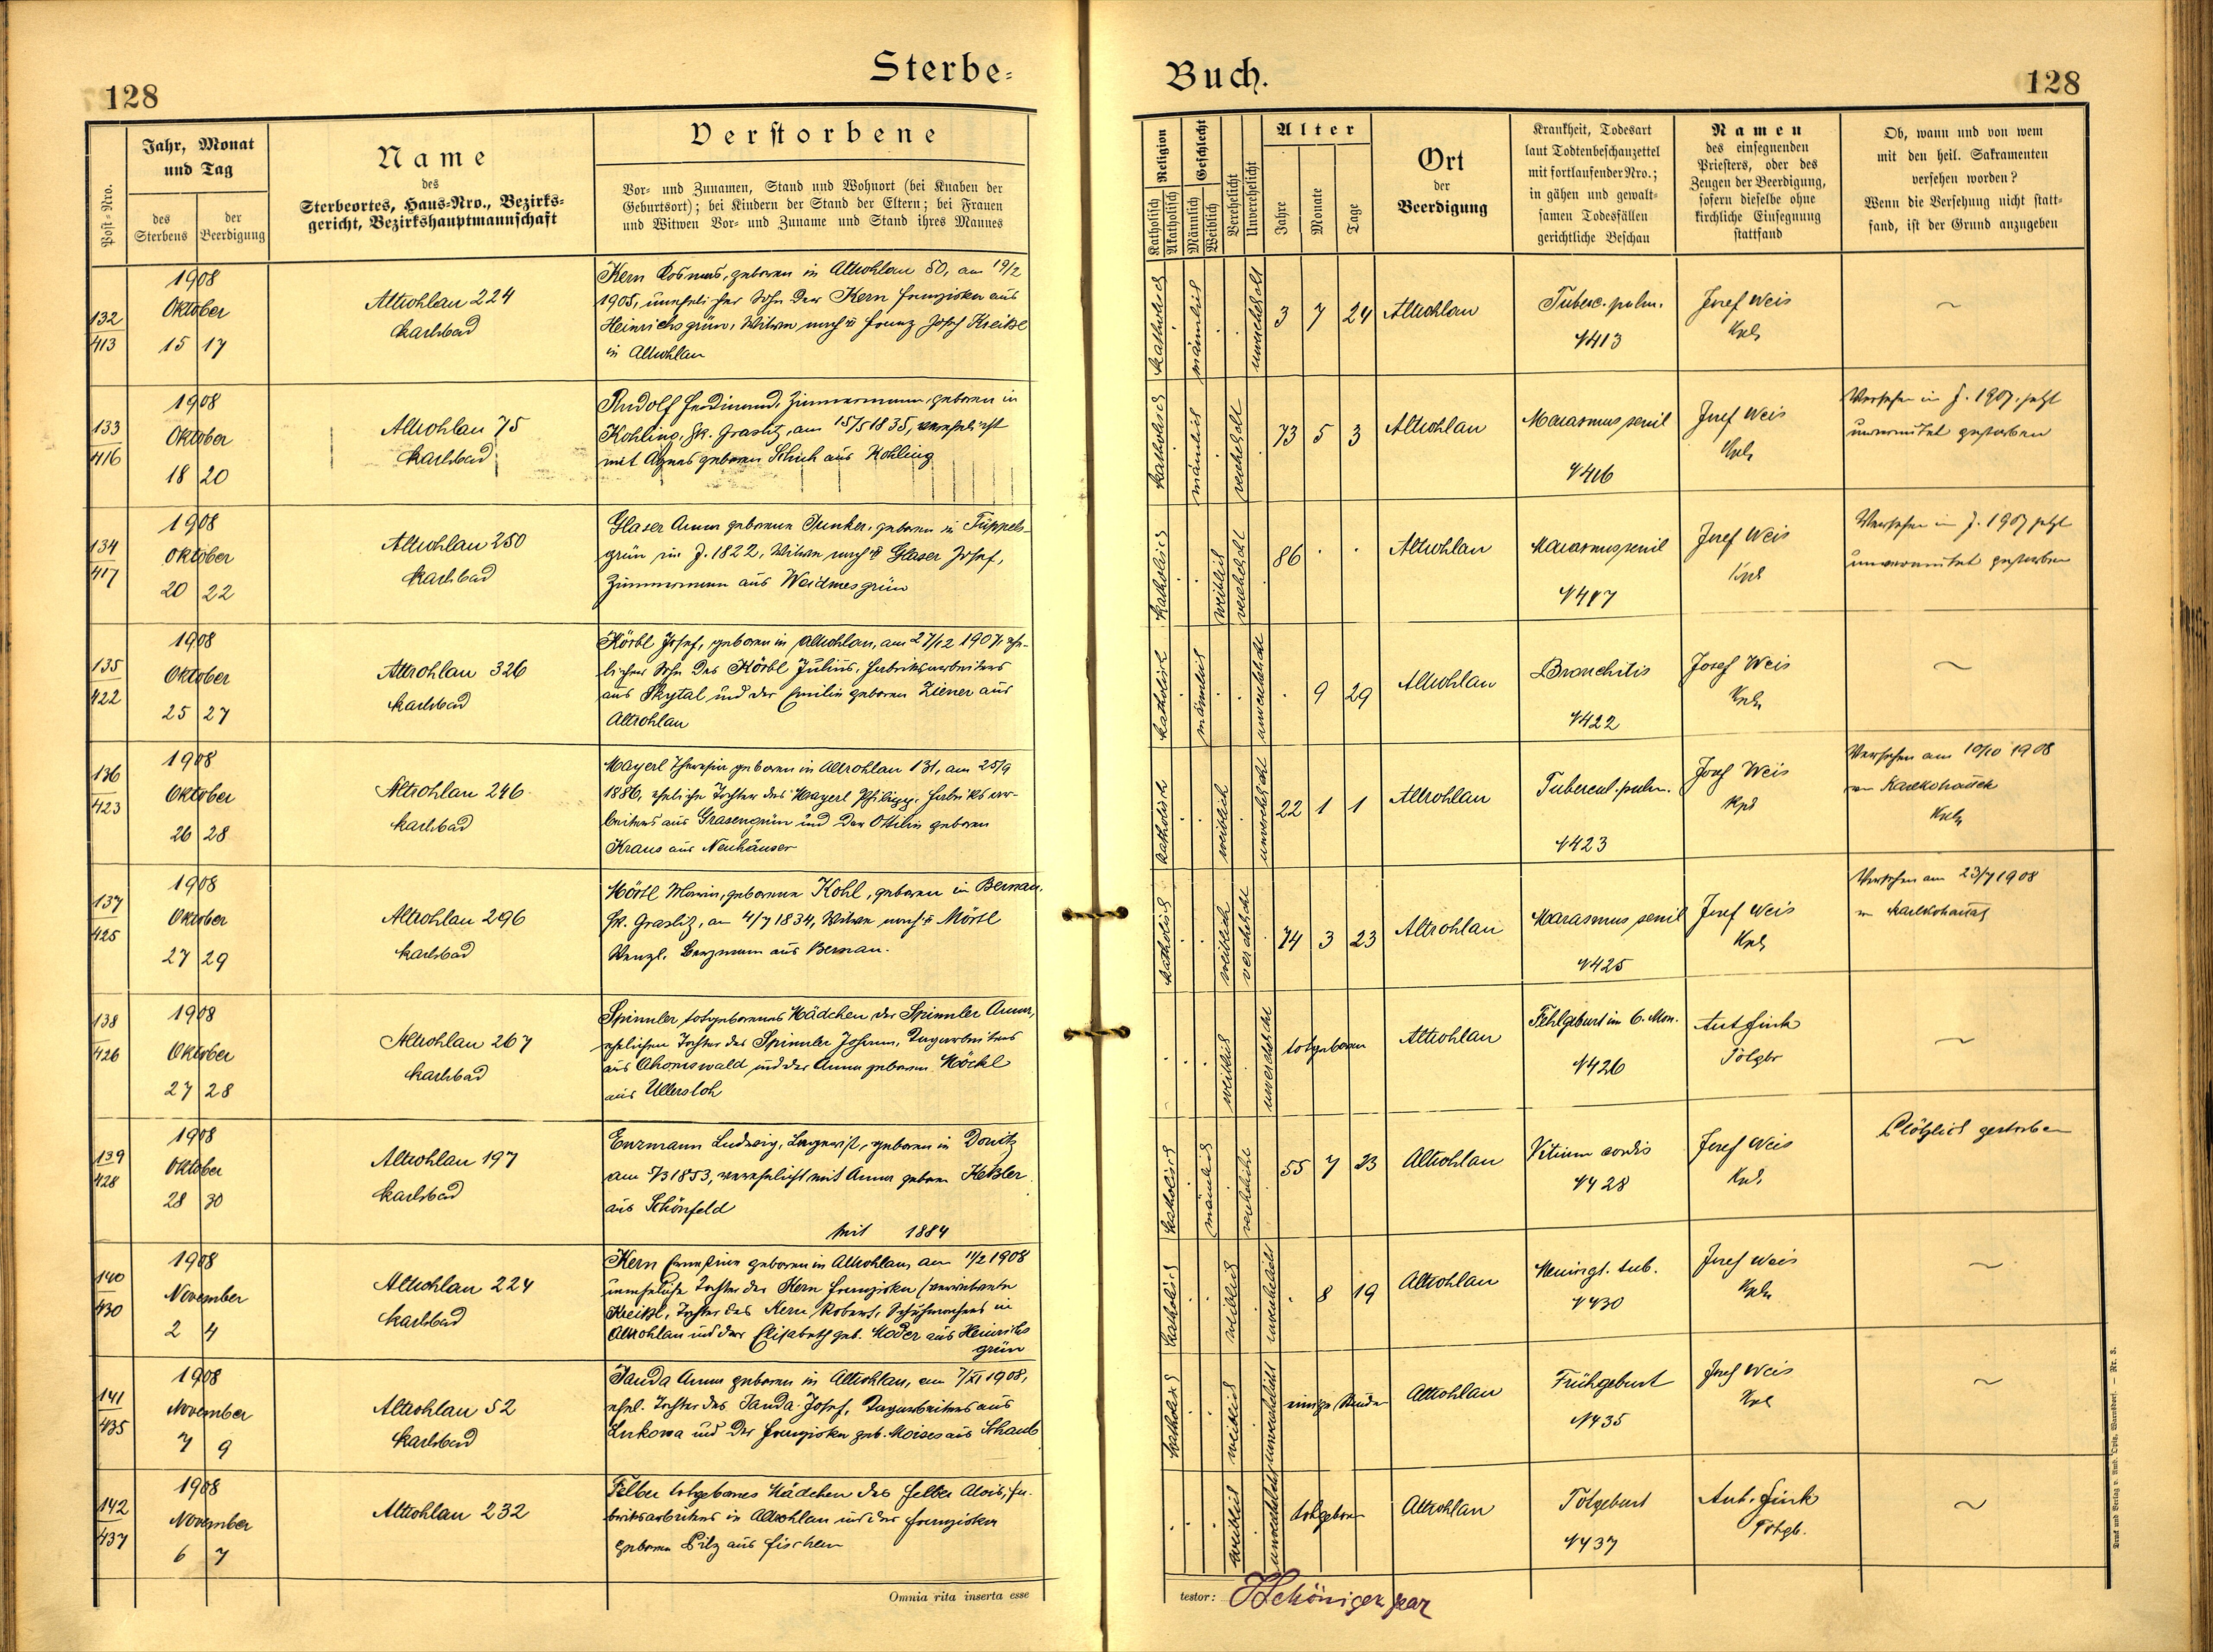 Sterbe-
Buch.
128
128
Post-Nro.
Jahr, Monat
und Tag
des
Sterbens
der
Beerdigung
Name
des
Sterbeortes, Haus-Nro., Bezirks-
gericht, Bezirkshauptmannschaft
Verstorbene
Vor- und Zunamen, Stand und Wohnort (bei Knaben der
Geburtsort); bei Kindern der Stand der Eltern; bei Frauen
und Witwen Vor- und Zuname und Stand ihres Mannes
Religion
Katholisch
Akatholisch
Geschlecht
Männlich
Weiblich
Verehelicht
Unverehelicht
Alter
Jahre
Monate
Tage
Ort
der
Beerdigung
Krankheit, Todesart
laut Todtenbeschauzettel
mit fortlaufender Nro.;
in gähen und gewalt-
samen Todesfällen
gerichtliche Beschau
Namen
des einsegnenden
Priesters, oder des
Zeugen der Beerdigung,
sofern dieselbe ohne
kirchliche Einsegnung
stattfand
Ob, wann und von wem
mit den heil. Sakramenten
versehen worden?
Wenn die Versehung nicht statt-
fand, ist der Grund anzugeben
132
413
1908
Oktober
15 17
Altrohlau 224
Karlsbad
Kern Kosmas, geboren in Altrohlau 50, am 19/2
1905, unehelicher Sohn der Kern Franziska aus
Heinrichsgrün, Witwe nach Franz Josef Kreißl
in Altrohlau
katholisch männlich unverehelicht
3 7 24
Altrohlau
Tuberc. pulm.
413
Josef Weis
Kpl.
133
416
1908
Oktober
18 20
Altrohlau 75
Karlsbad
Rudolf Ferdinand, Zimmermann, geboren in
Kohling, Bk. Graslitz, am 15/5 1835, verehelicht
mit Agnes geboren Schuh aus Kohling
katholisch männlich verehelicht
73 5 3
Altrohlau
Marasmus senil
416
Josef Weis
Kpl.
Versehen im J. 1907, jetzt
unvermutet gestorben
134
417
1908
Oktober
20 22
Altrohlau 250
Karlsbad
Glaser Anna geborene Junker, geboren in Tüppels-
grün im J. 1822, Witwe nach Glaser Josef,
Zimmermann aus Weidmesgrün
katholisch weiblich verehelicht
86 . .
Altrohlau
Marasmus senil
417
Josef Weis
Kpl.
Versehen im J. 1907 jetzt
unvermutet gestorben
135
422
1908
Oktober
25 27
Altrohlau 326
Karlsbad
Körbl Josef, geboren in Altrohlau, am 27/12 1907, ehe-
licher Sohn des Körbl Julius, Fabriksarbeiters
aus Skytal und der Emilie geboren Ziener aus
Altrohlau
katholisch männlich unverehelicht
. 9 29
Altrohlau
Bronchitis
422
Josef Weis
Kpl.
136
423
1908
Oktober
26 28
Altrohlau 246
Karlsbad
Mayerl Theresia geboren in Altrohlau 131, am 25/9
1886, eheliche Tochter des Mayerl Philipp, Fabriksar-
beiters aus Grasengrün und der Ottilie geboren
Kraus aus Neuhäuser
katholisch weiblich unverehelicht
22 1 1
Altrohlau
Tubercul. pulm.
423
Josef Weis
Kpl
Versehen am 10/10 1908
Kpl.
137
425
1908
Oktober
27 29
Altrohlau 296
Karlsbad
Mörtl Maria, geborene Kohl, geboren in Bernau,
Bk. Graslitz, am 4/7 1834, Witwe nach Mörtl
Wenzl, Bergmann aus Bernau.
katholisch weiblich verehelicht
74 3 23
Altrohlau
Marasmus senil
425
Josef Weis
Kpl.
Versehen am 23/7 1908
138
426
1908
Oktober
27 28
Altrohlau 267
Karlsbad
Spinnler totgeborenes Mädchen der Spinnler Anna,
ehelichen Tochter des Spinnler Johann, Tagarbeiters
aus Ahornswald und der Anna geboren Höckl
aus Ullersloh
weiblich unverehelicht
totgeboren
Altrohlau
Fehlgeburt im 6. Mon.
426
Ant Fink
Totgbr
139
428
1908
Oktober
28 30
Altrohlau 197
Karlsbad
Enzmann Ludwig, geboren in Donitz
am 5/3 1853, verehelicht mit Anna geboren Keßler
aus Schönfeld
seit 1884
katholisch männlich verehelicht
55 7 23
Altrohlau
Vitium cordis
428
Josef Weis
Kpl.
Plötzlich gestorben
140
430
1908
November
2 4
Altrohlau 224
Karlsbad
Kern Ernestine geboren in Altrohlau, am 11/2 1908
uneheliche Tochter der Kern Franziska (verwitwete
Kreißl, Tochter des Kern Robert, Schuhmachers in
Altrohlau und der Elisabeth geb. Moder aus Heinrichs
grün
katholisch weiblich unverehelicht
. 8 19
Altrohlau
Meningt. tub.
430
Josef Weis
Kpl.
141
435
1908
November
7 9
Altrohlau 52
Karlsbad
Janda Anna geboren in Altrohlau, am 7/XI 1908,
ehel. Tochter des Janda Josef, Tagarbeiters aus
Lukowa und der Franziska geb. Moises aus Schaub
katholisch weiblich unverehelicht
einige Stunden
Altrohlau
Frühgeburt
435
Josef Weis
Kpl
142
437
1908
November
6 7
Altrohlau 232
Felber totgeborenes Mädchen des Felber Alois, Fa-
briksarbeiters in Altrohlau und der Franziska
geboren Pilz aus Fischern
weiblich unverehelicht
totgeboren
Altrohlau
Totgeburt
437
Ant. Fink
Totgb.
Omnia rita inserta esse
testor:
Druck und Verlag v. Amb. Opitz, Warnsdorf. — Nr. 3.